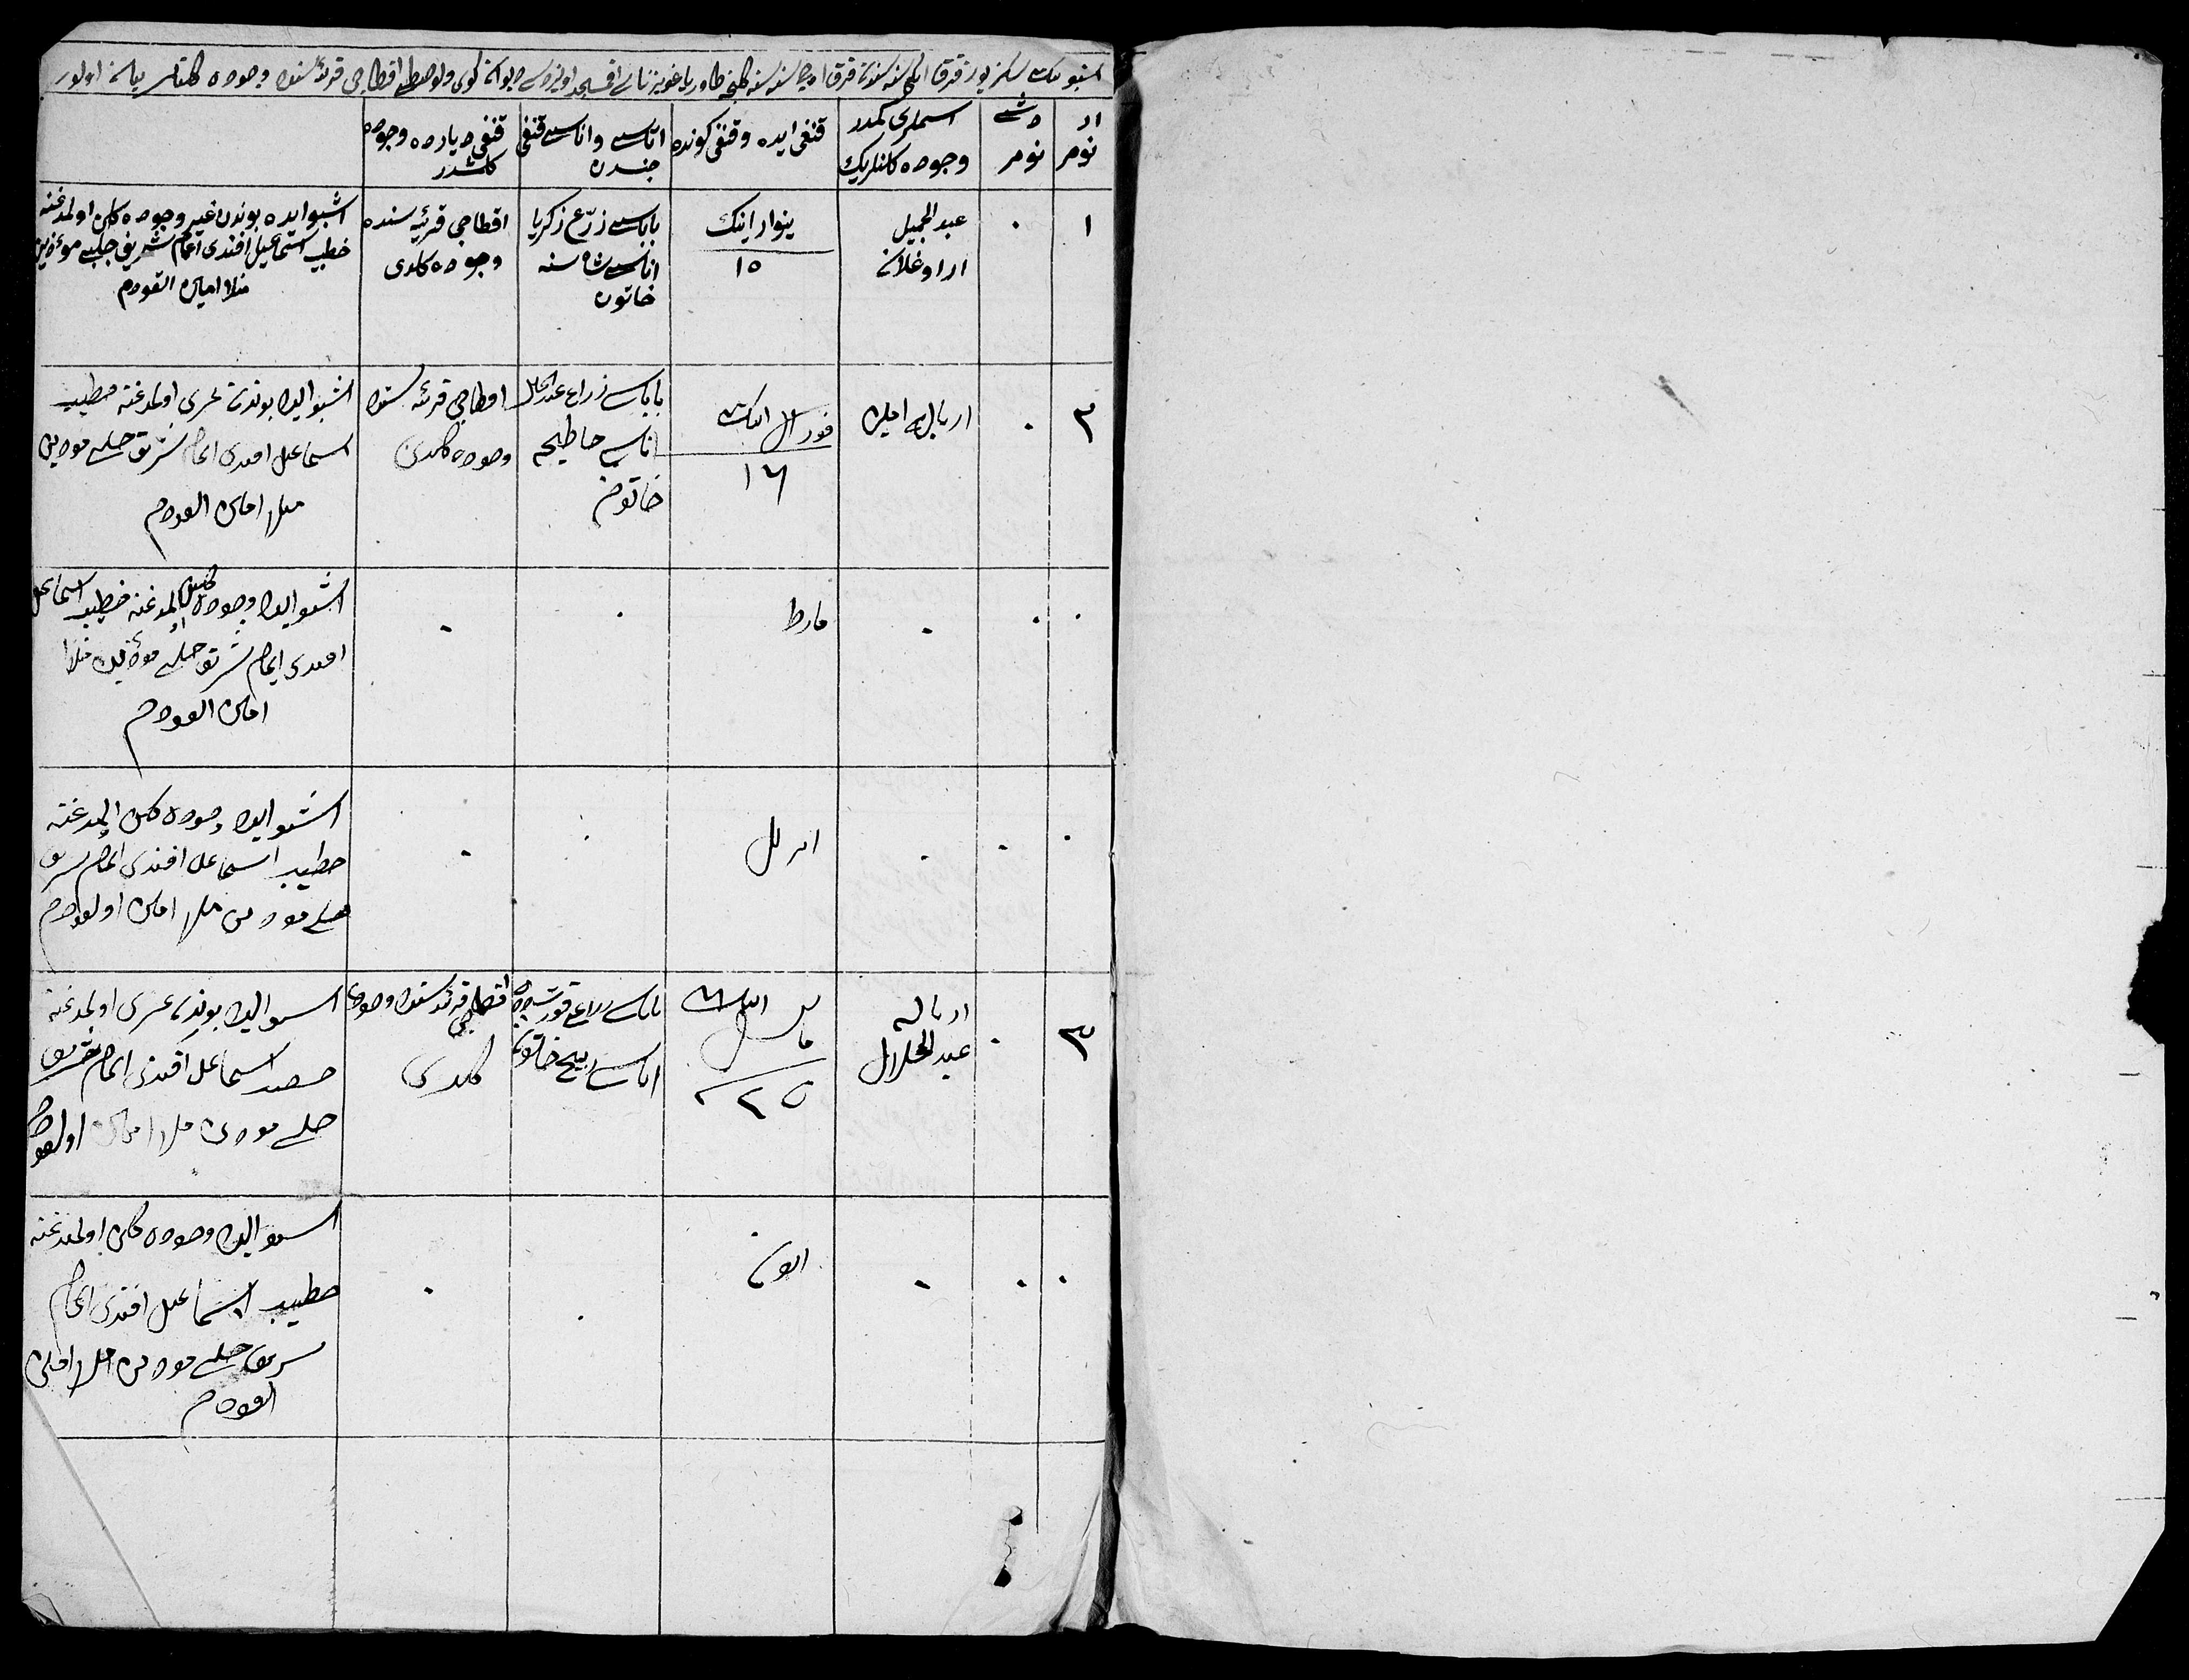 اشبو بیك سكز یوز قرق ایكی سنه سندن قرق اوچ سنه سنه كلنجه طاوریا غوبرناسی اقمسجد اویزدسی دیوان كوی ولوصط اقطاجی قریه سنده وجوده كلنلر بیان اولور
ار نومر
دشی نومر
اسملری كمدر وجوده كلنلریك
قنغی ایده و قنغی كونده
اتاسی و اناسی قنغی جندن
قنغی دیارده وجوده كلشدر
١
٠
عبد الجمیل
ار اوغلان
ینوار اینك
١٥
باباسی زرّع زكریا
اناسی
خاتون
اقطاجی قریه سنده
وجوده كلدی
اشبو ایده بوندن غیر وجوده كلن اولمدغنه
خطیب اسماعیل افندی امام شریف چلبی موءذین
منلا امیان القودم
٢
٠
ار بالا امین
فورال اینك
١٦
باباسی زراع
اناسی حاطیجه
خاتون
اقطاجی قریه سنده
وجوده كلدی
اشبو ایده بوندن غیری اولمدغنه خطیب
اسماعیل افندی امام شریف چلبی موءذین
منلا امیان القودم
٠
٠
٠
مارط
٠
٠
اشبو ایده وجوده كلن اولمدغنه خطیب اسماعیل
افندی امام شریف چلبی موءذین منلا
امیان القودم
٠
٠
٠
ابرل
٠
٠
اشبو ایده وجوده كلن اولمدغنه
خطیب اسماعیل افندی امام شریف
چلبی موءذین منلا امیان اولقودم
٣
٠
ار بالا
عبد الجلال
مایس اینك
٢٥
باباسی زراع
اناسی خاتون
اقطاجی قریه سنده وجوده
كلدی
اشبو ایده بوندن غیری اولمدغنه
خطیب اسماعیل افندی امام شریف
چلبی موءذین منلا امیان اولقودم
٠
٠
٠
ایون
٠
٠
اشبو ایده وجوده كلن اولمدغنه
خطیب اسماعیل افندی امام
شریف چلبی موءذین منلا امیان
القودم